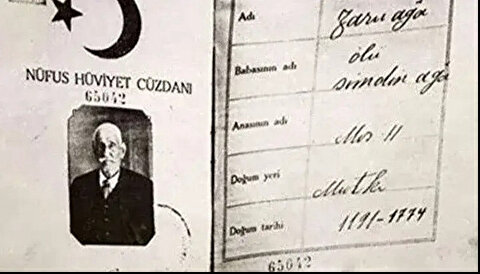 NÜFUS HÜVİYET CÜZDANI
65042
Adı
Zaro ağa
Babasının adı
ölü
Anasının adı
Doğum yeri
Mutki
Doğum tarihi
1191-1774
65042